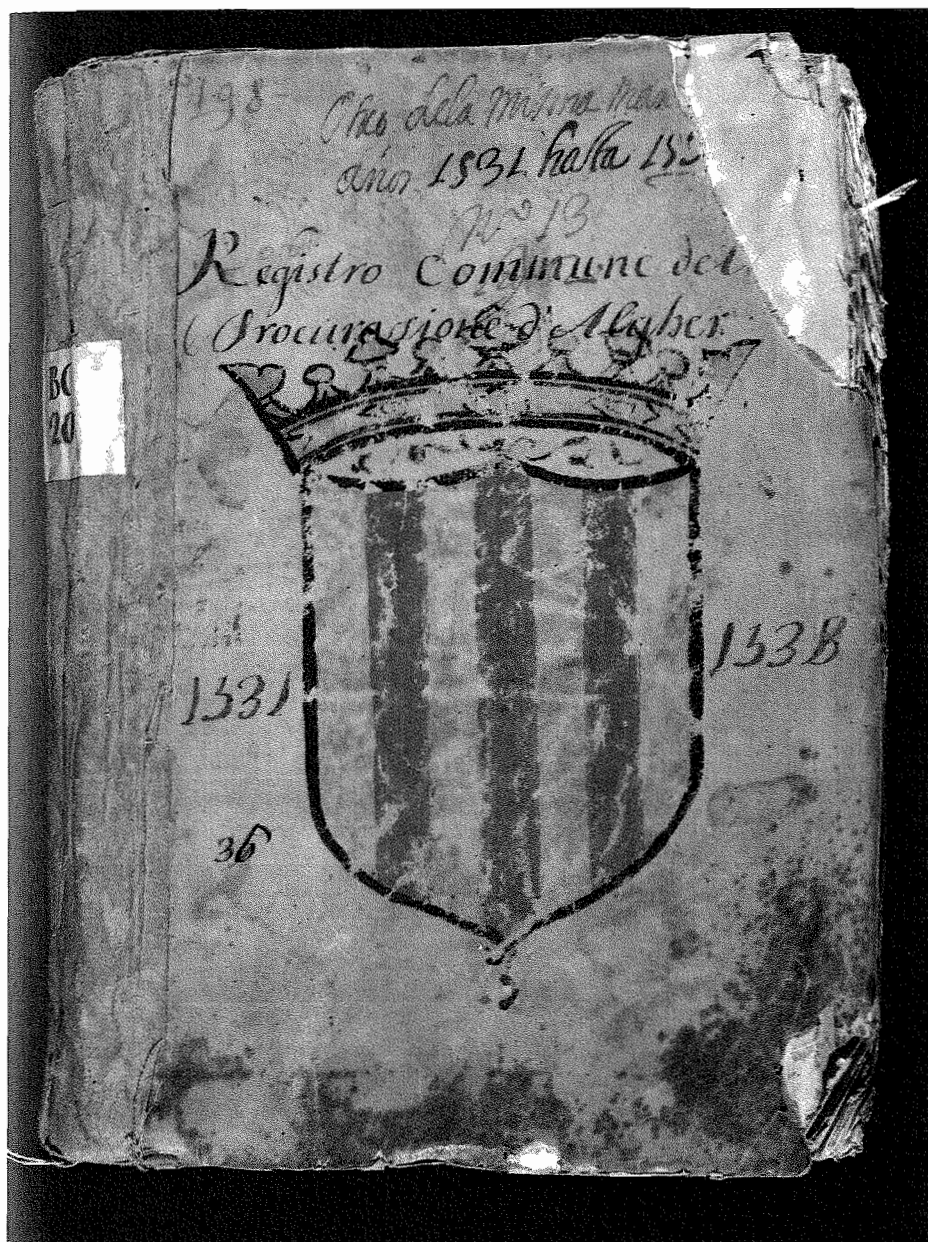 198
Otro dela misma
años 1531 hasta 153
Nº 13
Registro Commune del
Procurasione d'Algher
BC
20
1531
1538
36